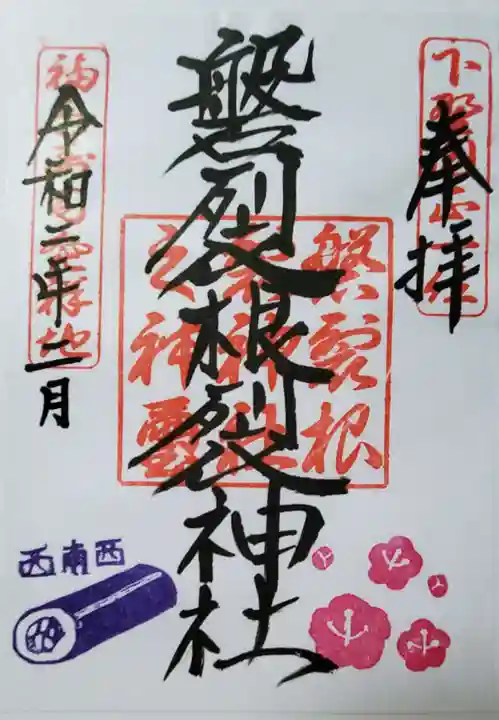 奉拝
磐裂根裂神社
磐裂根
裂神社
之神璽
令和二年二月
西南西